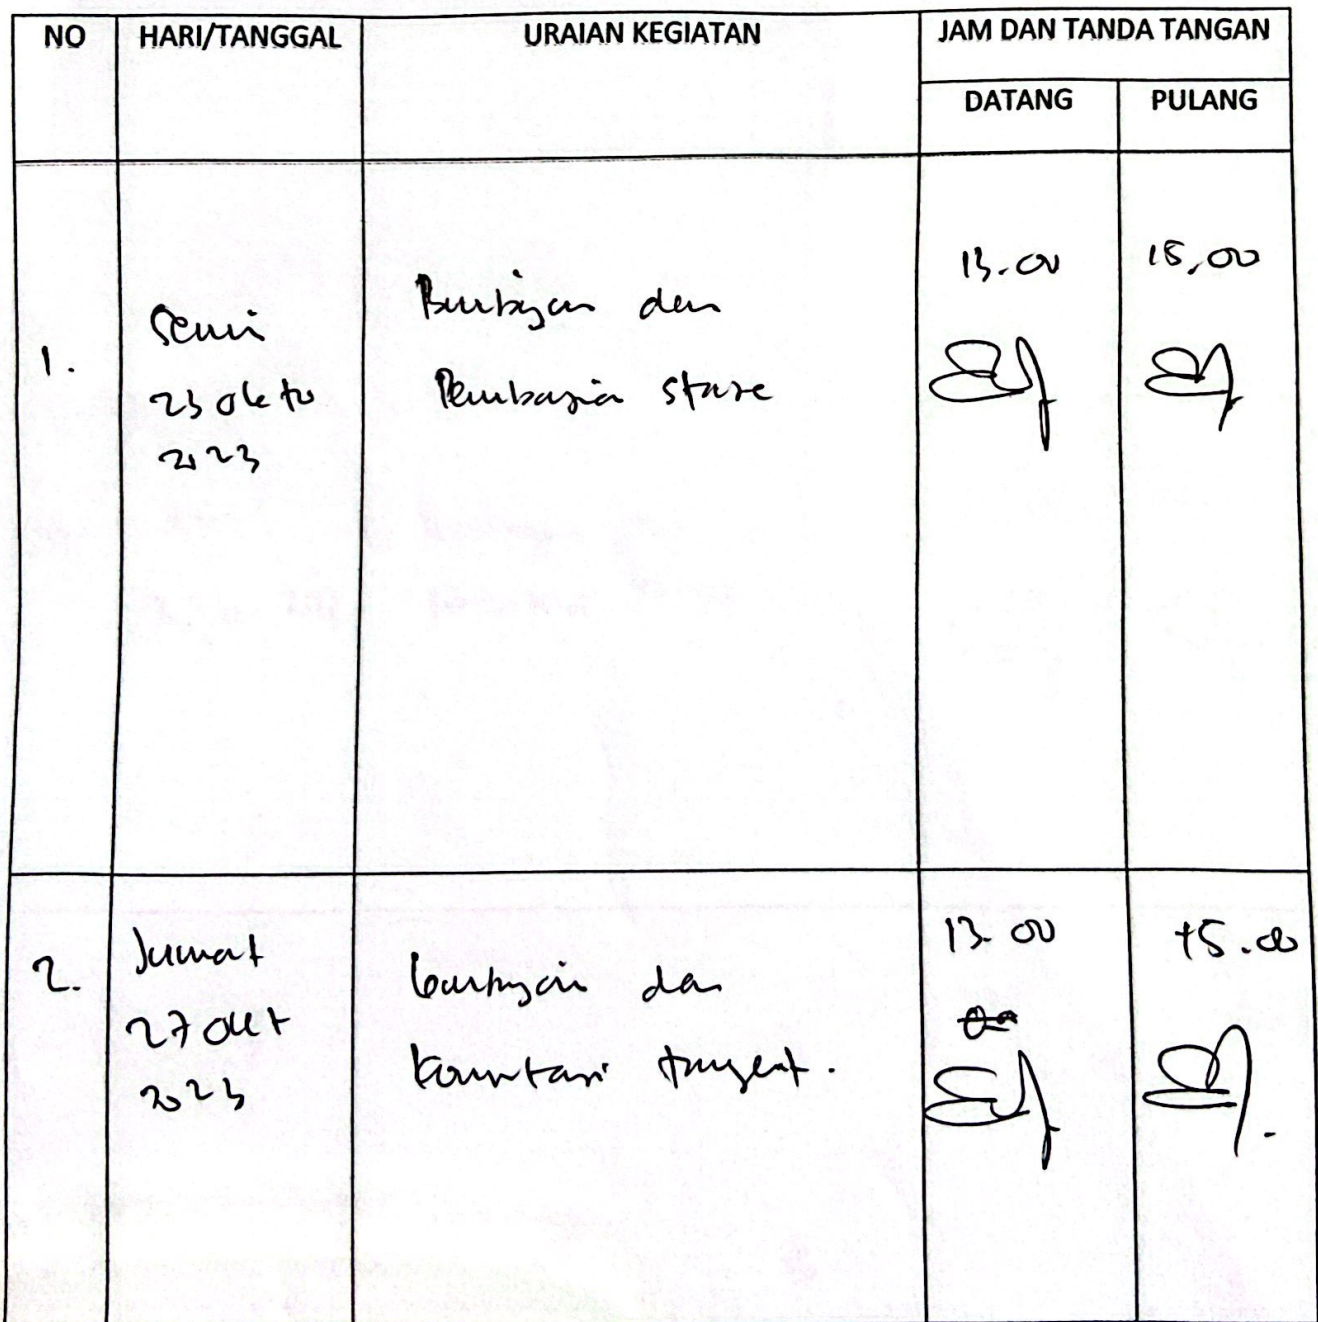 NO HARI/TANGGAL URAIAN KEGIATAN JAM DAN TANDA TANGAN
DATANG PULANG
1.
Senin
23 Okto
2023
Bimbingan dan
Pembagian stase
13.00 15.00
2.
Jumat
27 Okt
2023
bimbingan dan
target.
13.00 15.00